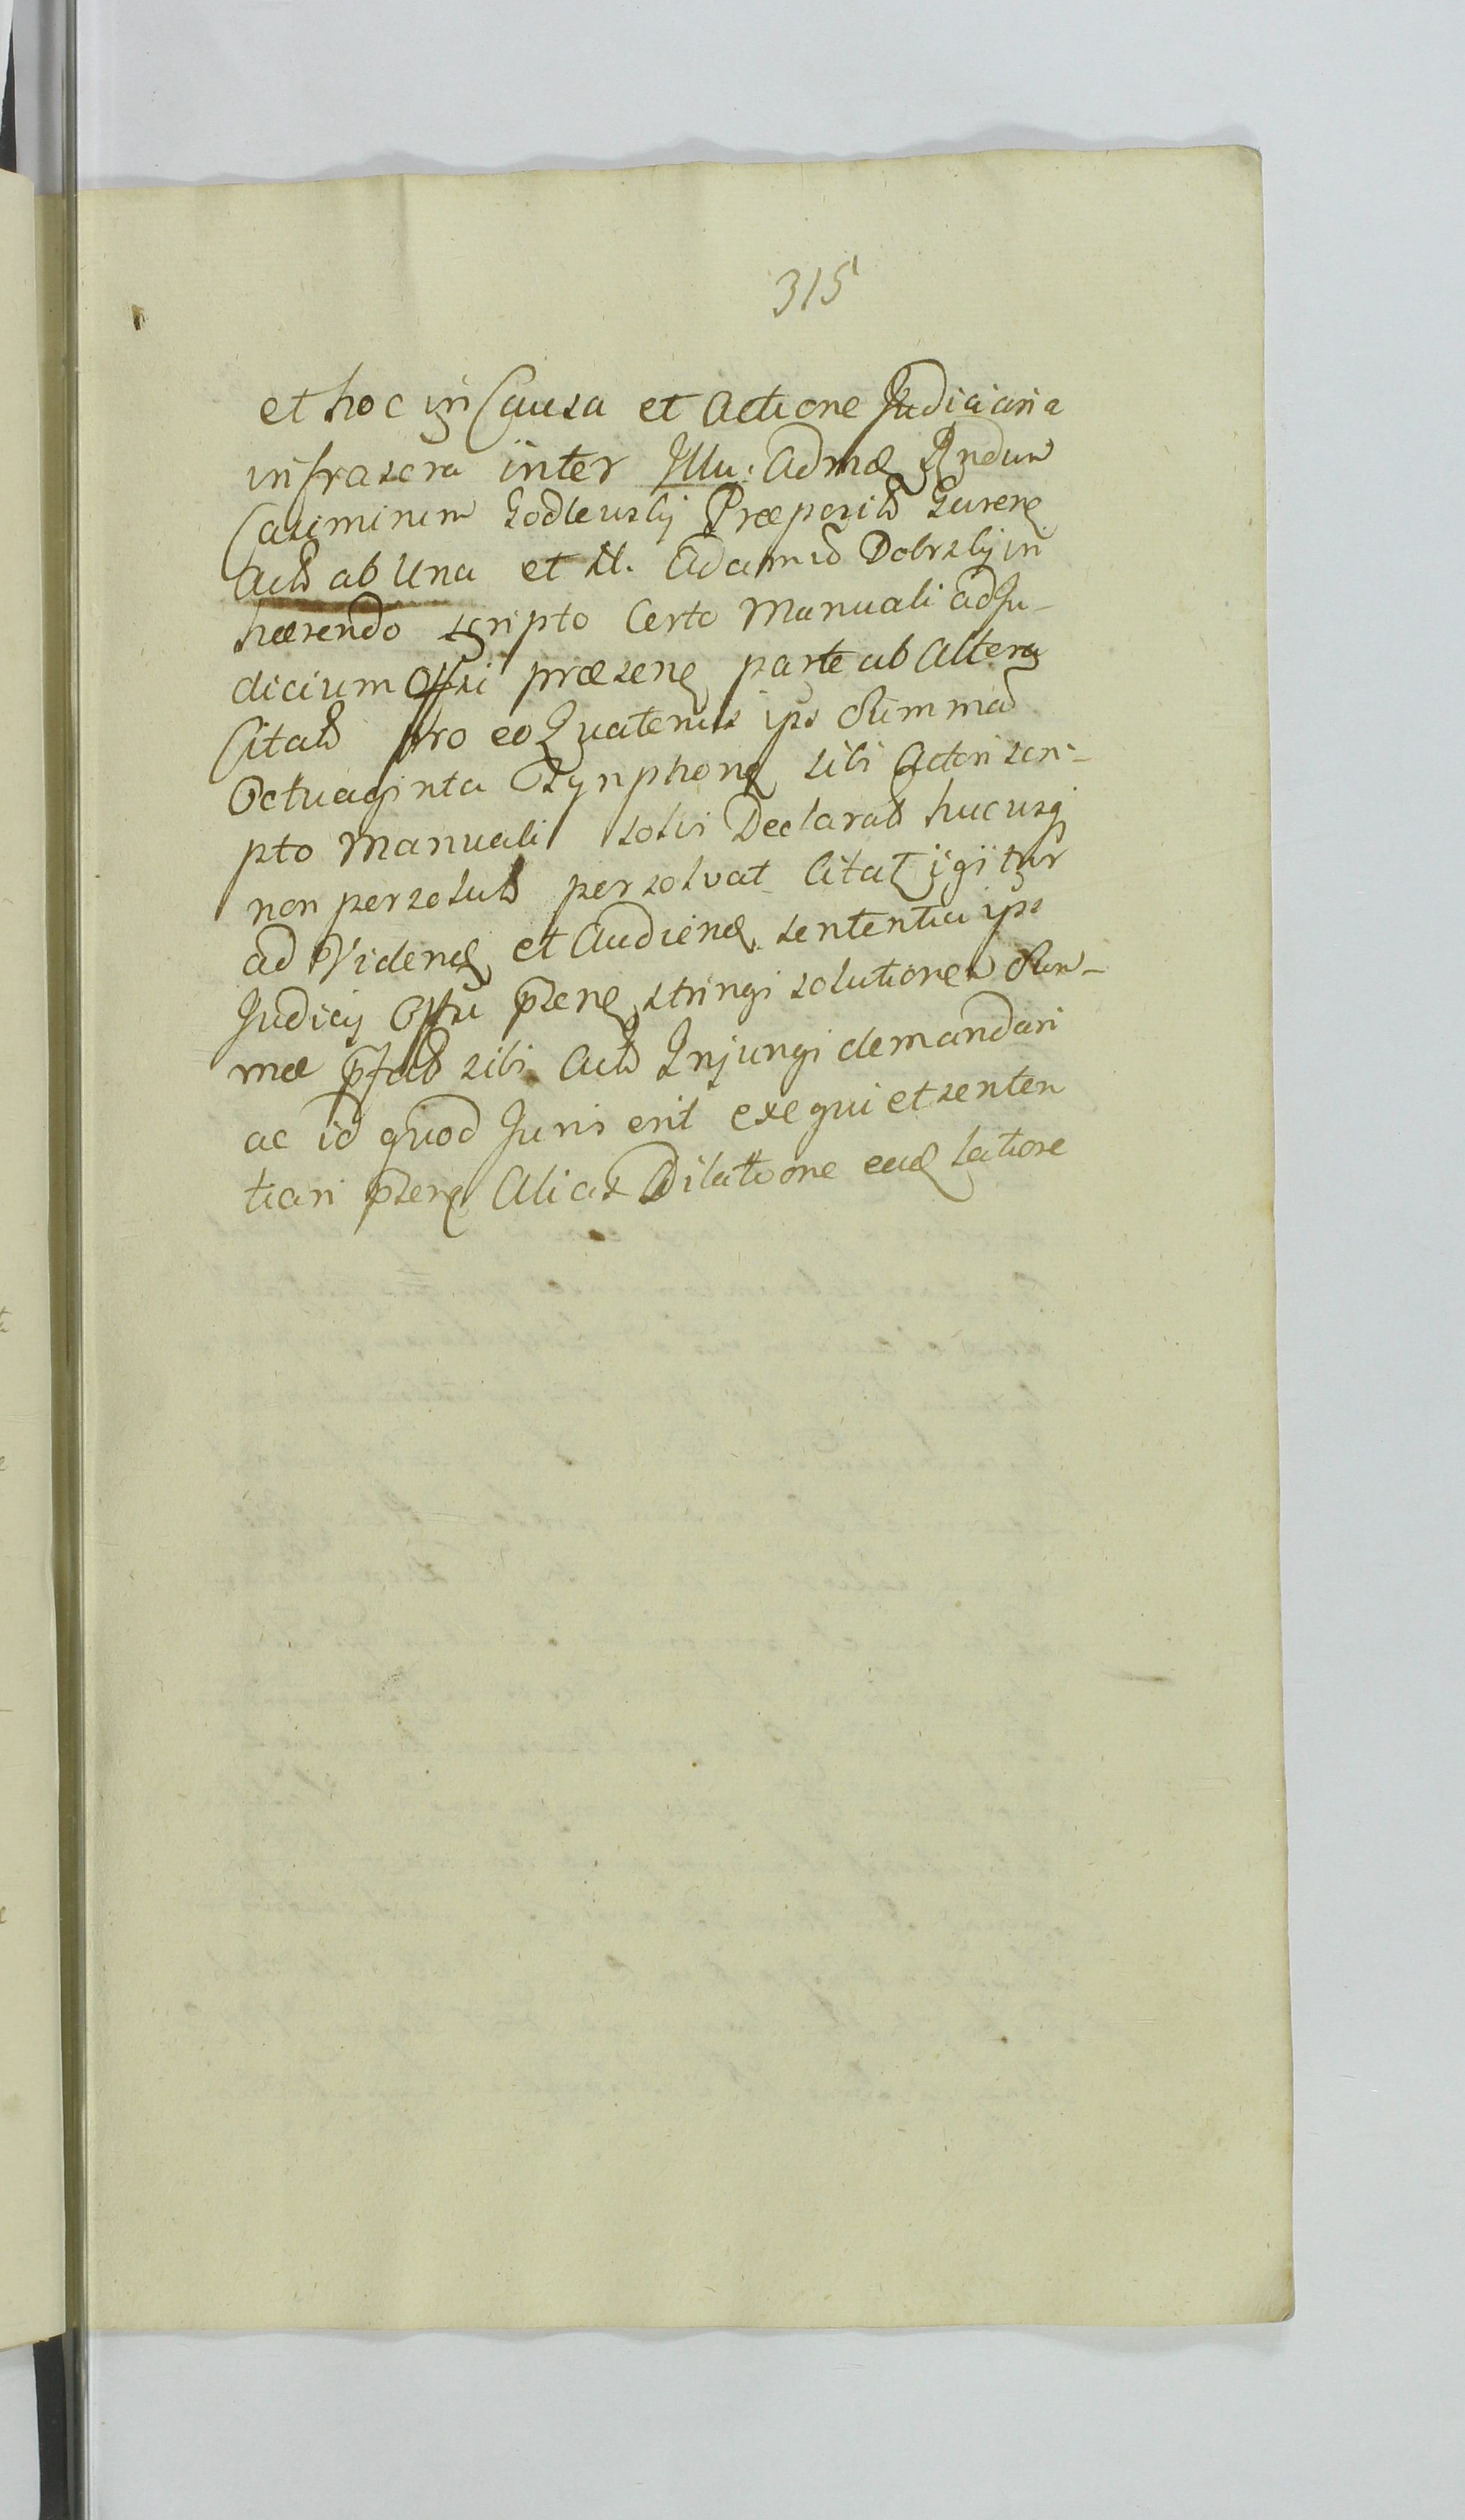 315
et hoc in Causa et Actione Judiciaria
infrascra inter Illu: Admꝫ Rndum
Casimirum Godlewskij Præposit Gurenꝫ
Act ab Una et M. Adamum Dobrskij in
hærendo scripto Certo Manuali ad Ju-
dicium Offi præsenꝫ parte ab Altera
Citat pro eo Quatenus ips Summam
Octuaginta Tynphonꝫ sibi Actori scri-
pto Manuali solvi Declarat hucusqꝫ
non persolut persolvat Citat igitur
ad Videnꝫ et Audienꝫ sententia ips
Judicij Offi psenꝫ stringi solutionem Sum-
mæ pfat sibi Act Injungi demandari
ac id quod Juris erit exequi et senten
tiari psenꝫ Alias Dilatione eaꝫ latiore